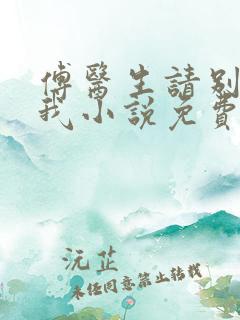 傅醫生請別
我小說免費
沅芷
未经同意禁止转载